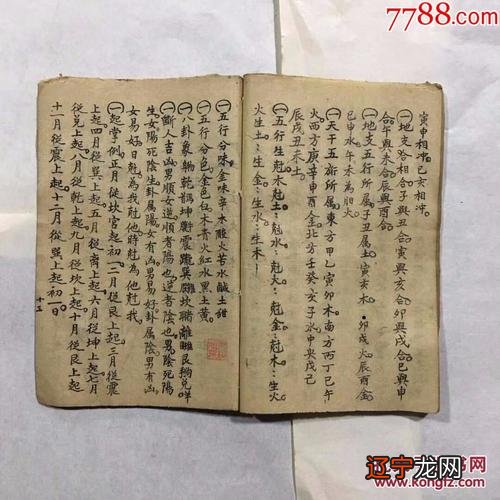 7788.com
寅申相冲。巳亥相冲。
㊀地支咨相合子與丑合寅與亥合卯與戌合巳與申
合午與未合辰與酉合
㊀地支五行所屬子丑屬土寅亥木卯戌火辰酉金
巳申水午未為胆火
㊀天干五臟所屬東方甲乙寅卯木南方丙丁巳午
火西方庚辛申酉金北方壬癸亥子水中央戊己
辰戌丑未土
㊀五行生尅木尅土尅水尅火尅金尅木生火
火生土生金生水生木
㊀五行分味金味辛木酸火苦水鹹土甜
㊀五行分色金色白木青火紅水黑土黃
㊀八卦象
㊀斷人吉凶男順女逆順者陽也逆者陰也男陰死陽
生女陽死陰生卦屬陽女有凶男易好卦屬陰男有凶
女易好日尅為我尅他時尅為他尅我
㊀起掌例正月從坎宮起初一二月從艮上起三月從震
上起四月從巽上起五月從离上起六月從坤上起七月
從兌上起八月從乾上起九月從坎上起十月從艮上起
十一月從震上起十二月從巽上起初一日
十五
书网
www.kongfz.com
辽宁龙网